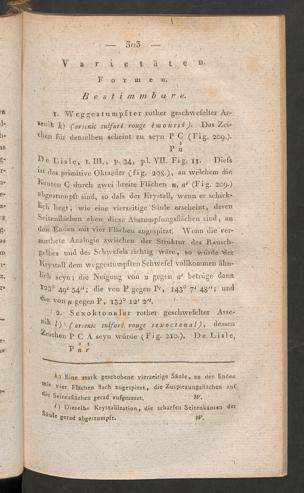 — 303 —
Varietäten.
Formen.
Bestimmbare.
1. Weggestumpfter rother geschwefelter Ar-
senik k) (arsenic sulfuré rouge émoussé). Das Zei-
chen für denselben scheint zu seyn P C (Fig. 209.).
P n
De Lisle, t. III., p. 34, pl. VII. Fig. 11. Diess
ist das primitive Oktaëder (fig. 208.), an welchem die
Kanten C durch zwei breite Flächen n, n' (Fig. 209.)
abgestumpft sind, so dass der Krystall, wenn er schick-
lich liegt, wie eine vierseitige Säule erscheint, deren
Seitenflächen eben diese Abstumpfungsflächen sind, an
den Enden mit vier Flächen zugespitzt. Wenn die ver-
muthete Analogie zwischen der Struktur des Rausch-
gelbes und des Schwefels richtig wäre, so würde der
Krystall dem weggestumpften Schwefel vollkommen ähn-
lich seyn; die Neigung von n gegen n' betrüge dann
die von P gegen P', 143° 7' 48"; und
die von n gegen P, 132° 12' 2".
2. Sexoktonaler rother geschwefelter Arse-
nik l) (arsenic sulfuré rouge sexoctonal), dessen
Zeichen P C A seyn würde (Fig. 210.). De Lisle,
P n r
k) Eine stark geschobene vierseitige Säule, an den Enden
mit vier Flächen flach zugespitzt, die Zuspitzungsflächen auf
die Seitenflächen gerad aufgesetzt. W.
l) Dieselbe Krystallisation, die scharfen Seitenkanten der
Säule gerad abgestumpft. W.